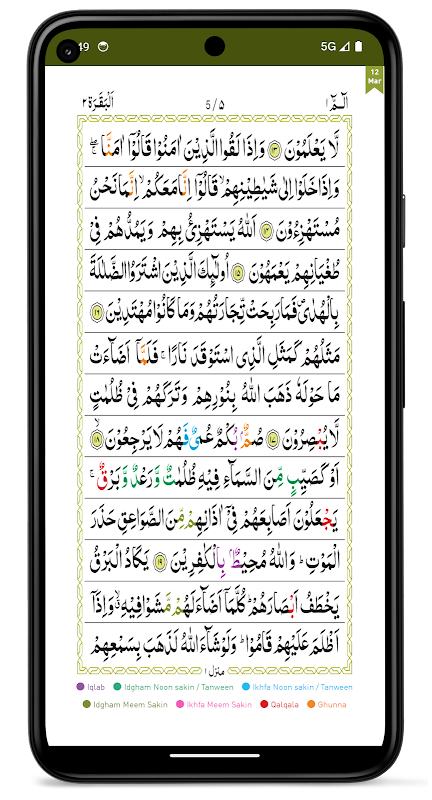 49 5G
12
Mar
اَلْبَقَرَة ٢ 5/۵ الٓمّٓ ١
لَّا يَعْلَمُوْنَ ۝١٣ وَاِذَا لَقُوا الَّذِيْنَ اٰمَنُوْا قَالُوْٓا اٰمَنَّا ۚۖ
وَاِذَا خَلَوْا اِلٰى شَيٰطِيْنِهِمْ ۙ قَالُوْٓا اِنَّا مَعَكُمْ ۙ اِنَّمَا نَحْنُ
مُسْتَهْزِءُوْنَ ۝١٤ اَللّٰهُ يَسْتَهْزِئُ بِهِمْ وَيَمُدُّهُمْ فِيْ
طُغْيَانِهِمْ يَعْمَهُوْنَ ۝١٥ اُولٰٓئِكَ الَّذِيْنَ اشْتَرَوُا الضَّلٰلَةَ
بِالْهُدٰى ۪ فَمَا رَبِحَتْ تِّجَارَتُهُمْ وَمَا كَانُوْا مُهْتَدِيْنَ ۝١٦
مَثَلُهُمْ كَمَثَلِ الَّذِى اسْتَوْقَدَ نَارًا ۚ فَلَمَّآ اَضَآءَتْ
مَا حَوْلَهٗ ذَهَبَ اللّٰهُ بِنُوْرِهِمْ وَتَرَكَهُمْ فِيْ ظُلُمٰتٍ
لَّا يُبْصِرُوْنَ ۝١٧ صُمٌّۢ بُكْمٌ عُمْيٌ فَهُمْ لَا يَرْجِعُوْنَ ۝١٨
اَوْ كَصَيِّبٍ مِّنَ السَّمَآءِ فِيْهِ ظُلُمٰتٌ وَّرَعْدٌ وَّبَرْقٌ ۚ
يَجْعَلُوْنَ اَصَابِعَهُمْ فِيْٓ اٰذَانِهِمْ مِّنَ الصَّوَاعِقِ حَذَرَ
الْمَوْتِ ؕ وَاللّٰهُ مُحِيْطٌۢ بِالْكٰفِرِيْنَ ۝١٩ يَكَادُ الْبَرْقُ
يَخْطَفُ اَبْصَارَهُمْ ؕ كُلَّمَآ اَضَآءَ لَهُمْ مَّشَوْا فِيْهِ ۙ وَاِذَآ
اَظْلَمَ عَلَيْهِمْ قَامُوْا ؕ وَلَوْ شَآءَ اللّٰهُ لَذَهَبَ بِسَمْعِهِمْ
منزل ١
Iqlab Idgham Noon sakin / Tanween Ikhfa Noon sakin / Tanween
Idgham Meem Sakin Ikhfa Meem Sakin Qalqala Ghunna